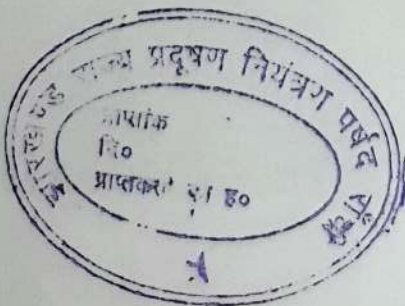 झारखण्ड राज्य प्रदूषण नियंत्रण पर्षद राँची
प्राप्तांक
दि०
प्राप्तकर्ता का ह०